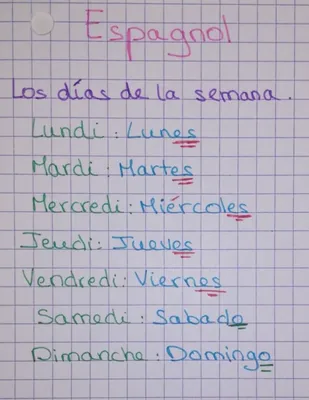 Espagnol
Los días de la semana.
Lundi : Lunes
Mardi : Martes
Mercredi : Miércoles
Jeudi : Jueves
Vendredi : Viernes
Samedi : Sabado
Dimanche : Domingo